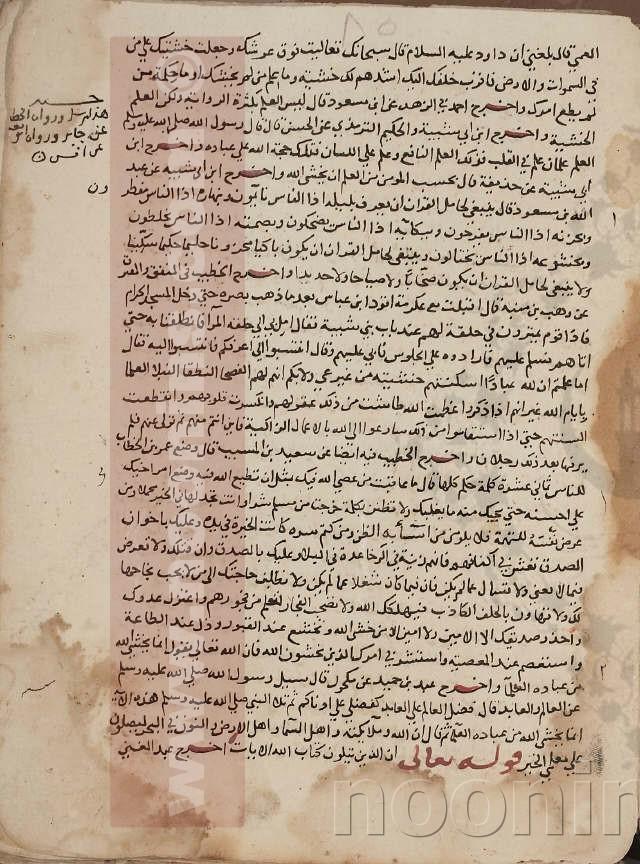 العمي قال بلغني ان داود عليه السلام قال سبحانك تعاليت فوق عرشك وجعلت خشيتك على من
في السموات والارض فاقرب خلقك اليك اشدهم لك خشية وما علم من لم يخشك وما حكمة من
لم يطع امرك واخرج احمد في الزهد عن ابن مسعود قال ليس العلم بكثرة الرواية ولكن العلم
الخشية واخرج ابن ابي شيبة والحكيم الترمذي عن الحسن قال قال رسول الله صلى الله عليه وسلم
العلم علمان علم في القلب فذلك العلم النافع وعلم على اللسان فتلك حجة الله على عباده واخرج ابن
ابي شيبة عن حذيفة قال بحسب المومن من العلم ان يخشى الله واخرج ابن ابي شيبه عن عبد
الله بن مسعود قال ينبغي لحامل القران ان يعرف بليله اذا الناس نايمون وبنهاره اذا الناس يفطر
وبحزنه اذا الناس يفرحون وببكآيه اذا الناس يضحكون وبصمته اذا الناس يخلطون
وبخشوعه اذا الناس يختالون وينبغي لحامل القران ان يكون باكيا محزونا حليما حكيما سكيتا
ولا ينبغي لحامل القران ان يكون صخابا ولا صياحا ولا حديدا واخرج الخطيب في المتفق والمفترق
عن وهب بن منبه قال اقبلت مع عكرمة اقود ابن عباس بعد ما ذهب بصره حتى دخل المسجد الحرام
فاذا قوم يمترون في حلقة لهم عند باب بني شيبة فقال امل بي الى حلقة المرآ فانطلقنا به حتى
اتاهم فسلم عليهم فارادوه على الجلوس فابى عليهم وقال انتسبوا الي اعرفكم فانتسبوا اليه فقال
اما علمتم ان لله عبادا اسكتتهم خشيته من غير عي ولا بكم انهم لهم الفصحا النطقا النبلا العلما
بايام الله غير انهم اذا ذكروا عظمة الله طاشت من ذلك عقولهم وانكسرت قلوبهم وانقطعت
السنتهم حتى اذا استقاموا من ذلك سارعوا الى الله بالاعمال الزاكية فاين انتم منهم ثم تولى عنهم فلم
ير بعد ذلك رجلان واخرج الخطيب فيه ايضا عن سعيد بن المسيب قال وضع عمر بن الخطاب
للناس ثماني عشرة كلمة حكم كلها قال ما عاقبت من عصى الله فيك بمثل ان تطيع الله فيه وضع امر اخيك
على احسنه حتى يجيك منه ما يغلبك ولا تظنن بكلمة خرجت من مسلم شرا وانت تجد لها في الخير محملا ومن
عرض نفسه للتهمة فلا يلومن من اسآء به الظن ومن كتم سره كانت الخيرة في يده وعليك باخوان
الصدق تعش في اكنافهم فانهم زينة في الرخا عدة في البلاء وعليك بالصدق وان قتلك ولا تعرض
فيما لا يعني ولا تسال عما لم يكن فان فيما كان شغلا عما لم يكن ولا تطلبن حاجتك الى من لا يحب نجاحها
لك ولا تهاون بالحلف الكاذب فيهلكك الله ولا تصحب الفجار لتعلم من فجورهم واعتزل عدوك
واحذر صديقك الا الامين ولا امين الا من خشي الله وتخشع عند القبور وذل عند الطاعة
واستعصم عند المعصية واستشر في امرك الذين يخشون الله فان الله تعالى يقول انما يخشى الله
من عباده العلمآ واخرج عبد بن حميد عن مكحول قال سيل رسول الله صلى الله عليه وسلم
عن العالم والعابد فقال فضل العالم على العابد كفضلي على ادناكم ثم تلا النبي صلى الله عليه وسلم هذه الآية
انما يخشى الله من عباده العلمآ ثم قال ان الله وملآيكته واهل السمآ واهل الارض والنون في البحر ليصلون
على معلمي الخير قوله تعالى ان الذين يتلون كتاب الله الايات اخرج عبد الغني
هذا مرسل ورواه الخطيب
عن جابر
عن انس
noonir